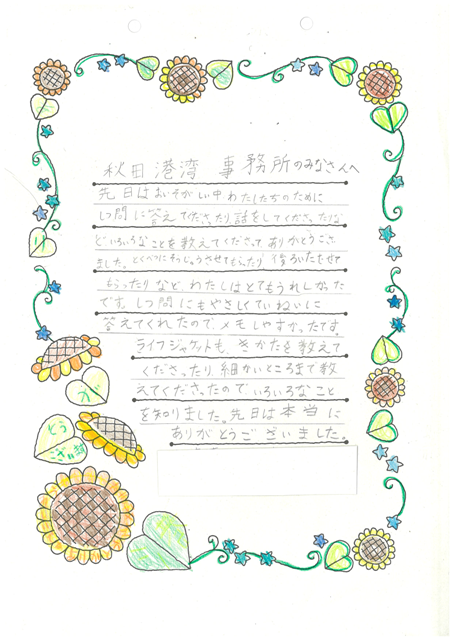 秋田港湾 事務所のみなさんへ
先日はおいそがしい中わたしたちのために
しつ問に答えてくださったり、話をしてくださったりな
どいろいろなことを教えてくださってありがとうござい
ました。とくべつにそうじゅうさせてもらったり
もらったりなど、わたしはとてもうれしかった
です。しつ問にもやさしくていねいに
答えてくれたので、メモしやすかったです。
ライフジャケットも、きかたを教えて
くださったり、細かいところまで教
えてくださったのでいろいろなこと
を知りました。先日は本当に
ありがとうございました。
が
とう
ござい